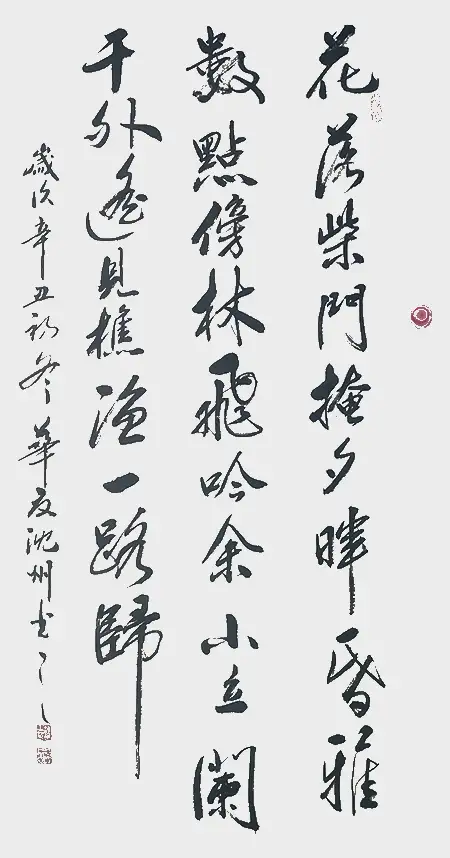 花落柴門掩夕暉昏雅
數點傍林飛吟余小立闌
干外遙見樵漁一路歸
歲次辛丑初冬華友沈州書